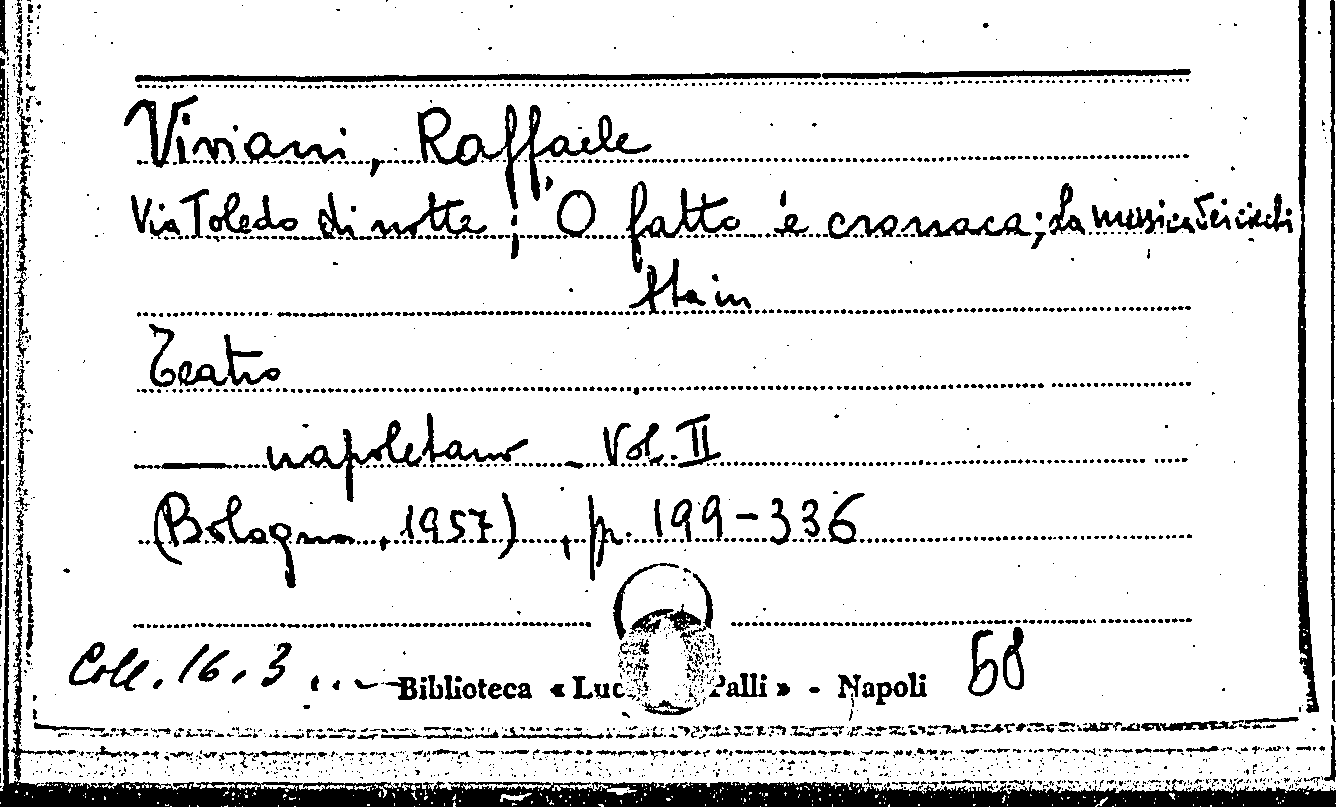 Viviani, Raffaele
Via Toledo di notte; 'O fatto 'e cronaca; La musica dei ciechi
sta in
Teatro
— napoletano - Vol. II
(Bologna, 1957), p. 199-336
Coll. 16.3 ...
Biblioteca « Luc Palli » - Napoli
58